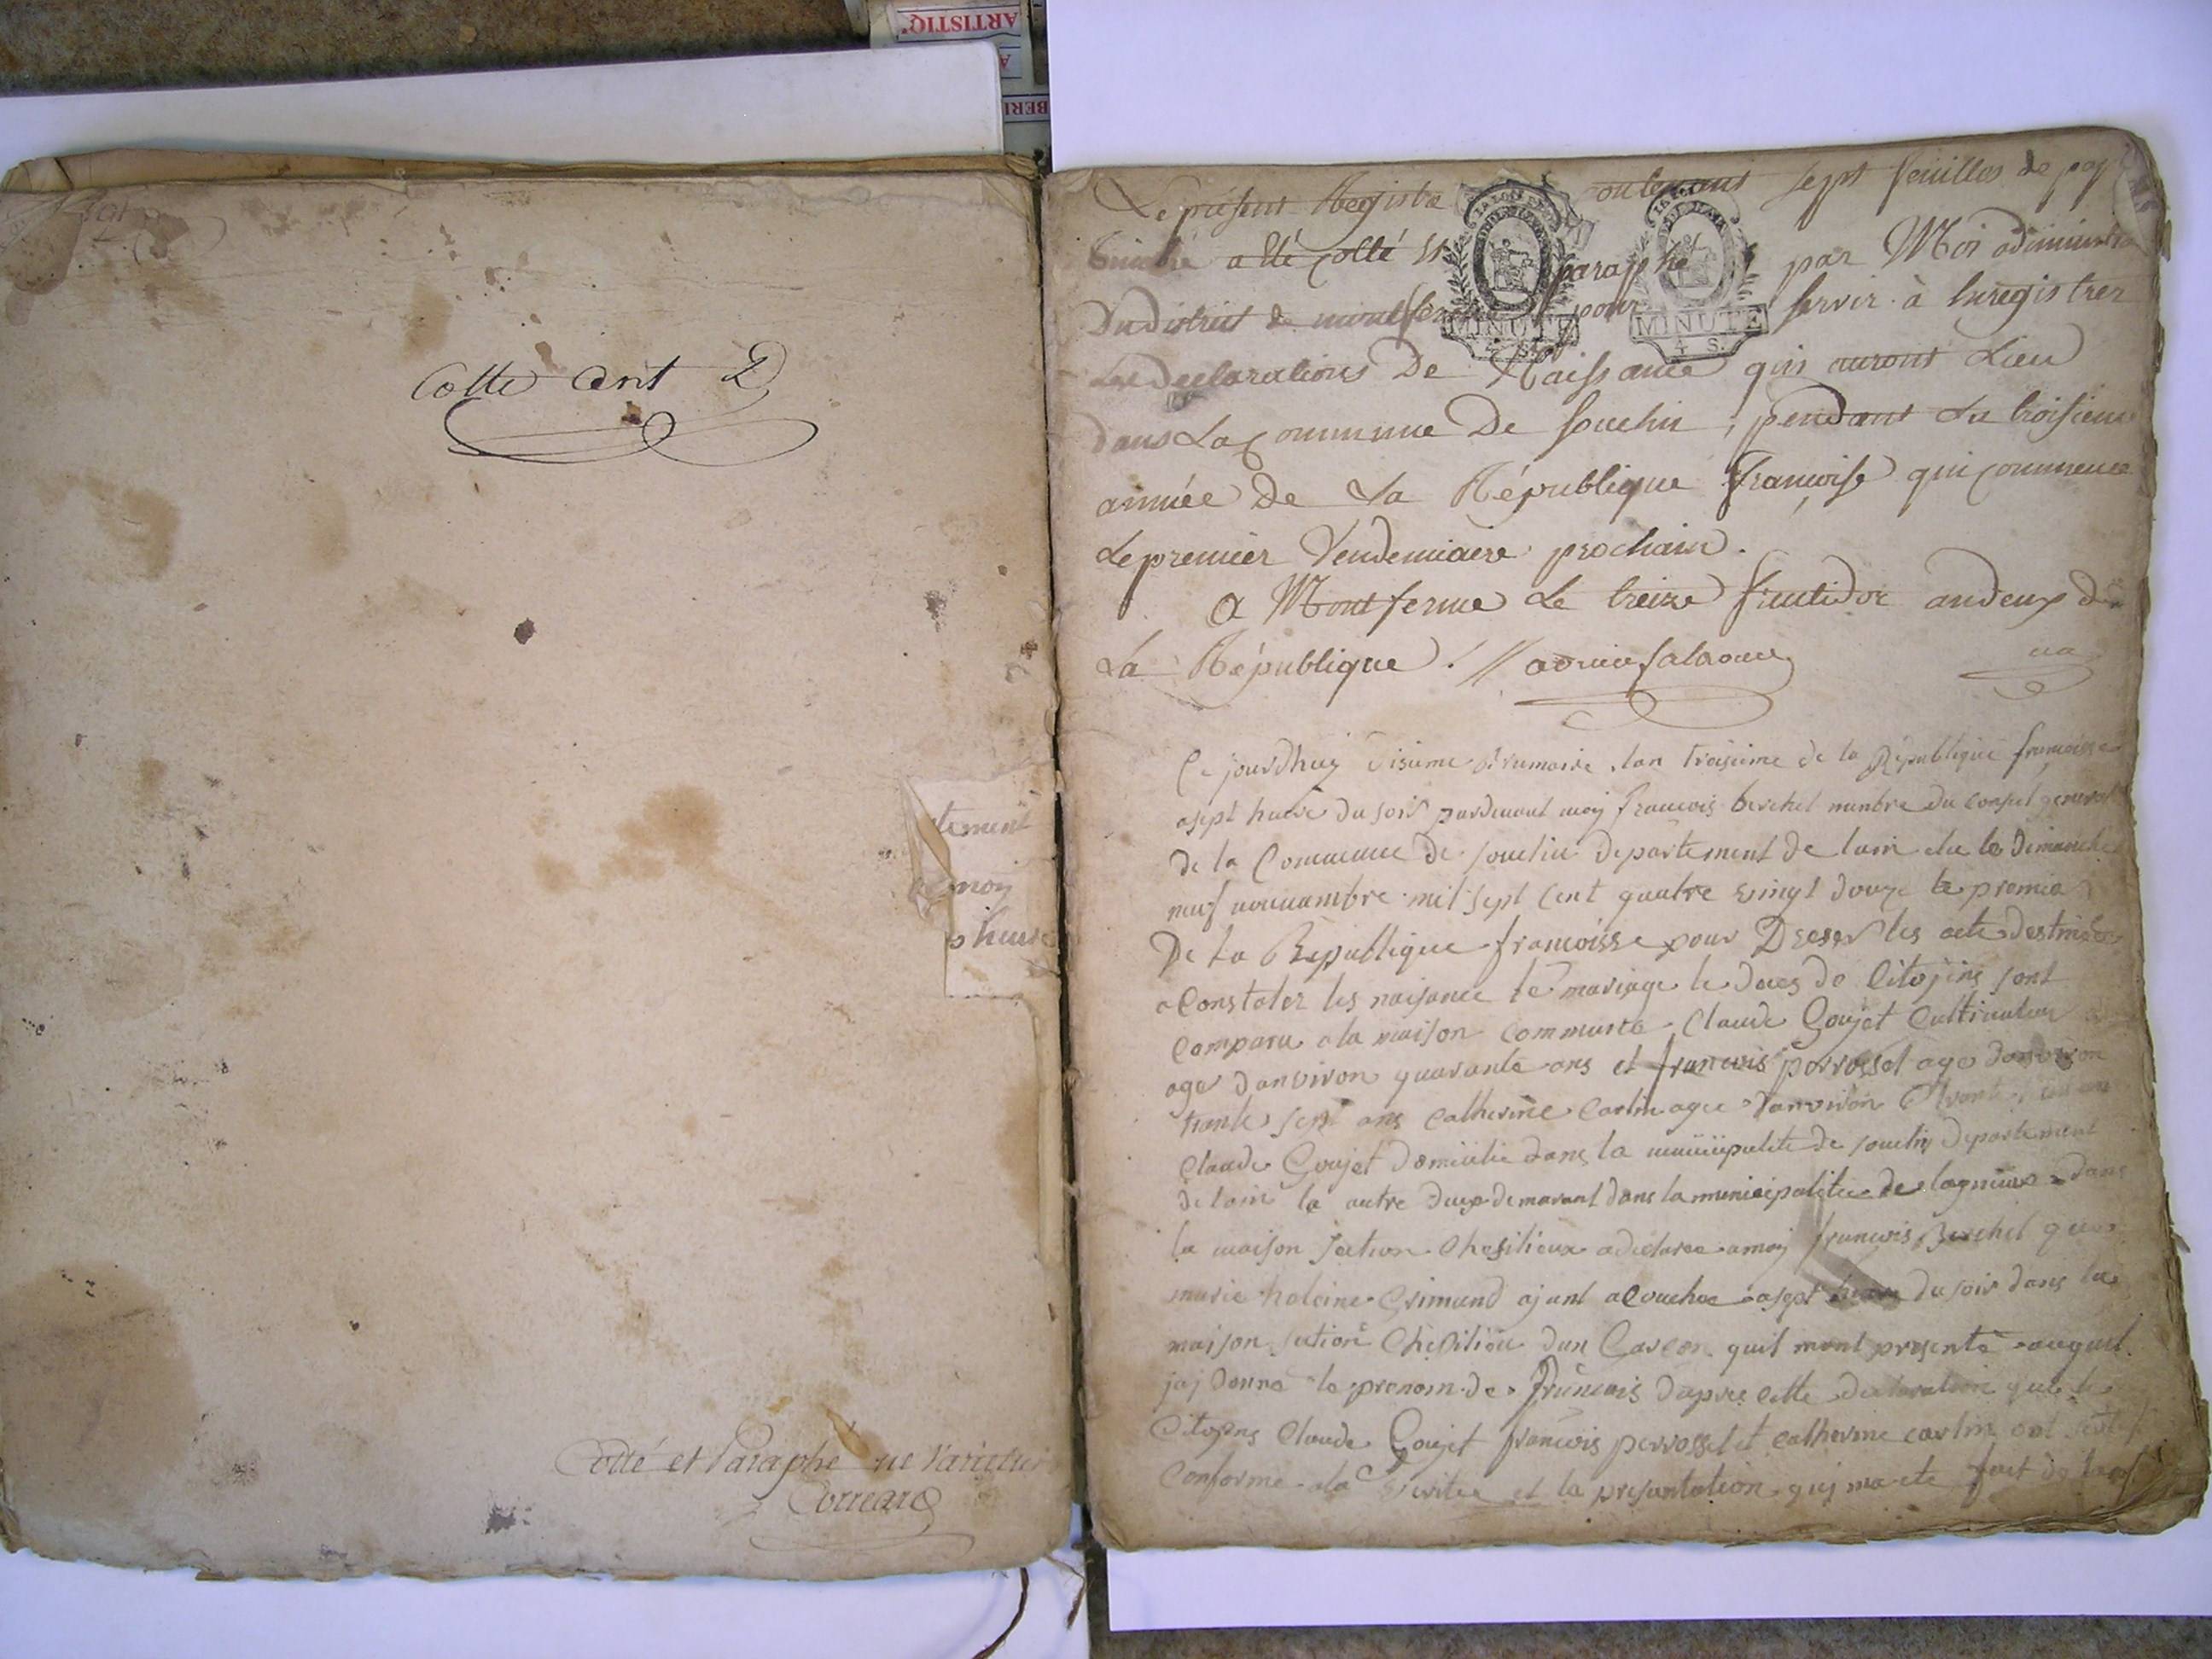 ARTISTIQ'
Cotte cent 2
tement
moy
heure
Cotté et Paraphé ne varietur
Le présent Registre contenant sept feuilles de pap
timbré a été cotté et paraphé par Moi administra
du district de montferme pour servir à Enregistrer
MINUTE
4 S.
MINUTE
4 S.
Les declarations De Naissance qui auront Lieu
dans La Commune De souclin, pendant La troisieme
année De La République françoise qui commence
Le premier Vendemiaire prochain.
a Montferme Le treize fructidor an deux de
La République. //
Ce jourdhuy disieme brumaire lan troisieme de la République francoisse
a sept heure du soir pardevant moy francois berchet menbre du conseil general
de la Commune de souclin departement de lain elu le dimanche
neuf novambre mil sept cent quatre vingt douze le premie
De La Republique francoisse pour Dreser les acte destine
a Constater les naisance le mariage le deces de Citojens sont
Comparu a la maison commune Claude Goujet Cultivateur
age danviron quarante ans et francois perrosset age danviron
trante sept ans catherine carlin agee danviron
Claude Goujet domicilie dans la municipalite de souclin departement
de lain la autre deux demarant dans la municipalitee de lagnieux dans
la maison section Chesilieux a declaree a moy francois Berchet que
marie heleine Grimand ajant acouchee a sept heure du soir dans la
maison section Chesilieu dun Garcon quil mont presente auquel
jaj donné le prenom de francois dapres cette declaration que le
Citojens Claude Goujet francois perrosset et catherine carlin ont
Conforme a la veritee et la presantation quj ma ete fait de